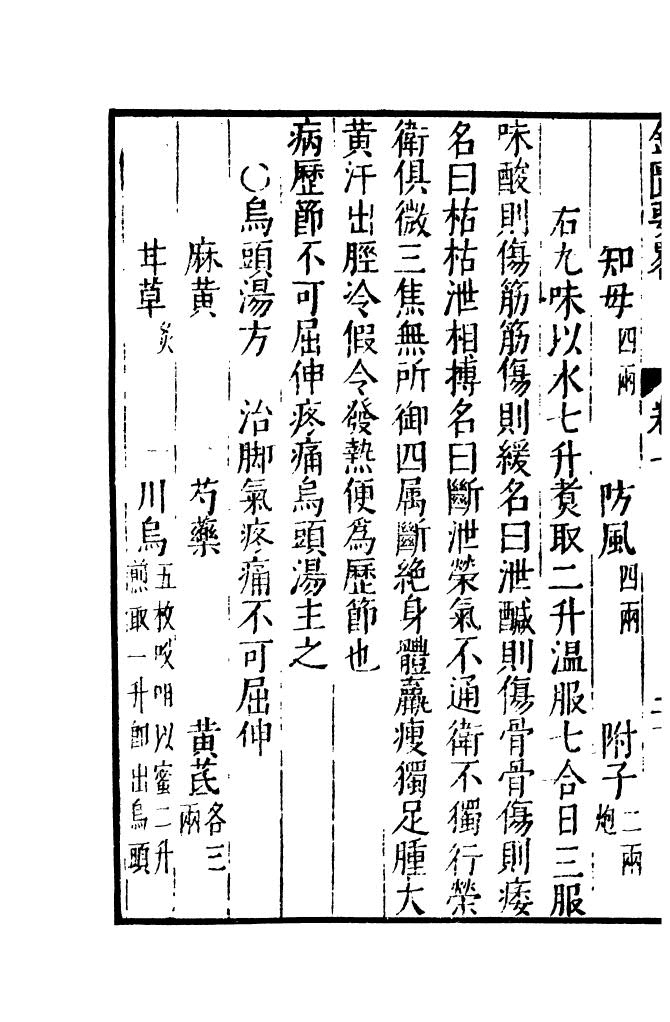 知母四兩 防風四兩 附子二兩炮
右九味以水七升煑取二升温服七合日三服
味酸則傷筋筋傷則緩名曰泄醎則傷骨骨傷則痿
名曰枯枯泄相摶名曰斷泄榮氣不通衛不獨行榮
衛俱微三焦無所御四属斷絶身體羸瘦獨足腫大
黄汗出脛冷假令發熱便爲歷節也
病歷節不可屈伸疼痛烏頭湯主之
〇烏頭湯方 治脚氣疼痛不可屈伸
麻黄 芍藥 黄芪各三兩
甘草炙 川烏五枚㕮咀以蜜二升煎取一升即出烏頭